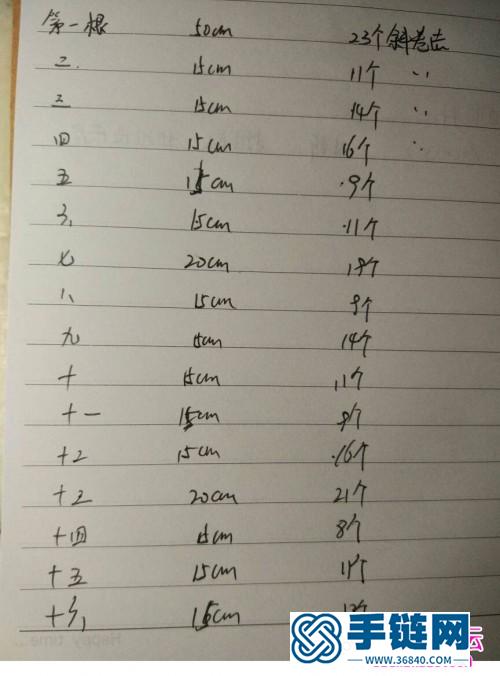 第一根 50cm 23个斜卷结
二 15cm 11个 〃
三 15cm 14个 〃
四 15cm 16个 〃
五 15cm 9个
六 15cm 11个
七 20cm 19个
八 15cm 9个
九 15cm 14个
十 15cm 11个
十一 15cm 9个
十二 15cm 16个
十三 20cm 21个
十四 15cm 8个
十五 15cm 11个
十六 15cm
Happy time
手链网
www.36840.com